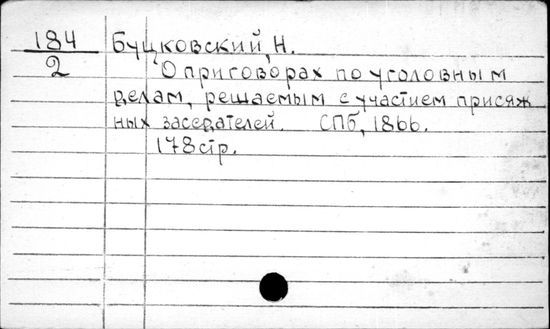 184 Буцковский, Н.
2 О приговорах по уголовным
делам, решаемым с участием присяж
ных заседателей. СПб, 1866.
178 стр.